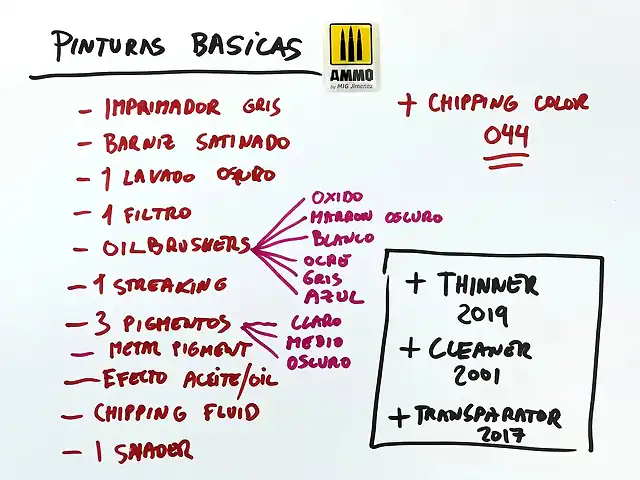 PINTURAS BASICAS
AMMO
by MIG Jimenez
- IMPRIMADOR GRIS
- BARNIZ SATINADO
- 1 LAVADO OSCURO
- 1 FILTRO
- OILBRUSHERS
OXIDO
MARRON OSCURO
BLANCO
OCRE
GRIS
AZUL
- 1 STREAKING
- 3 PIGMENTOS
CLARO
MEDIO
OSCURO
- METAR PIGMENT
- EFECTO ACEITE/OIL
- CHIPPING FLUID
- 1 SHADER
+ CHIPPING COLOR
044
+ THINNER
2019
+ CLEANER
2001
+ TRANSPARATOR
2017